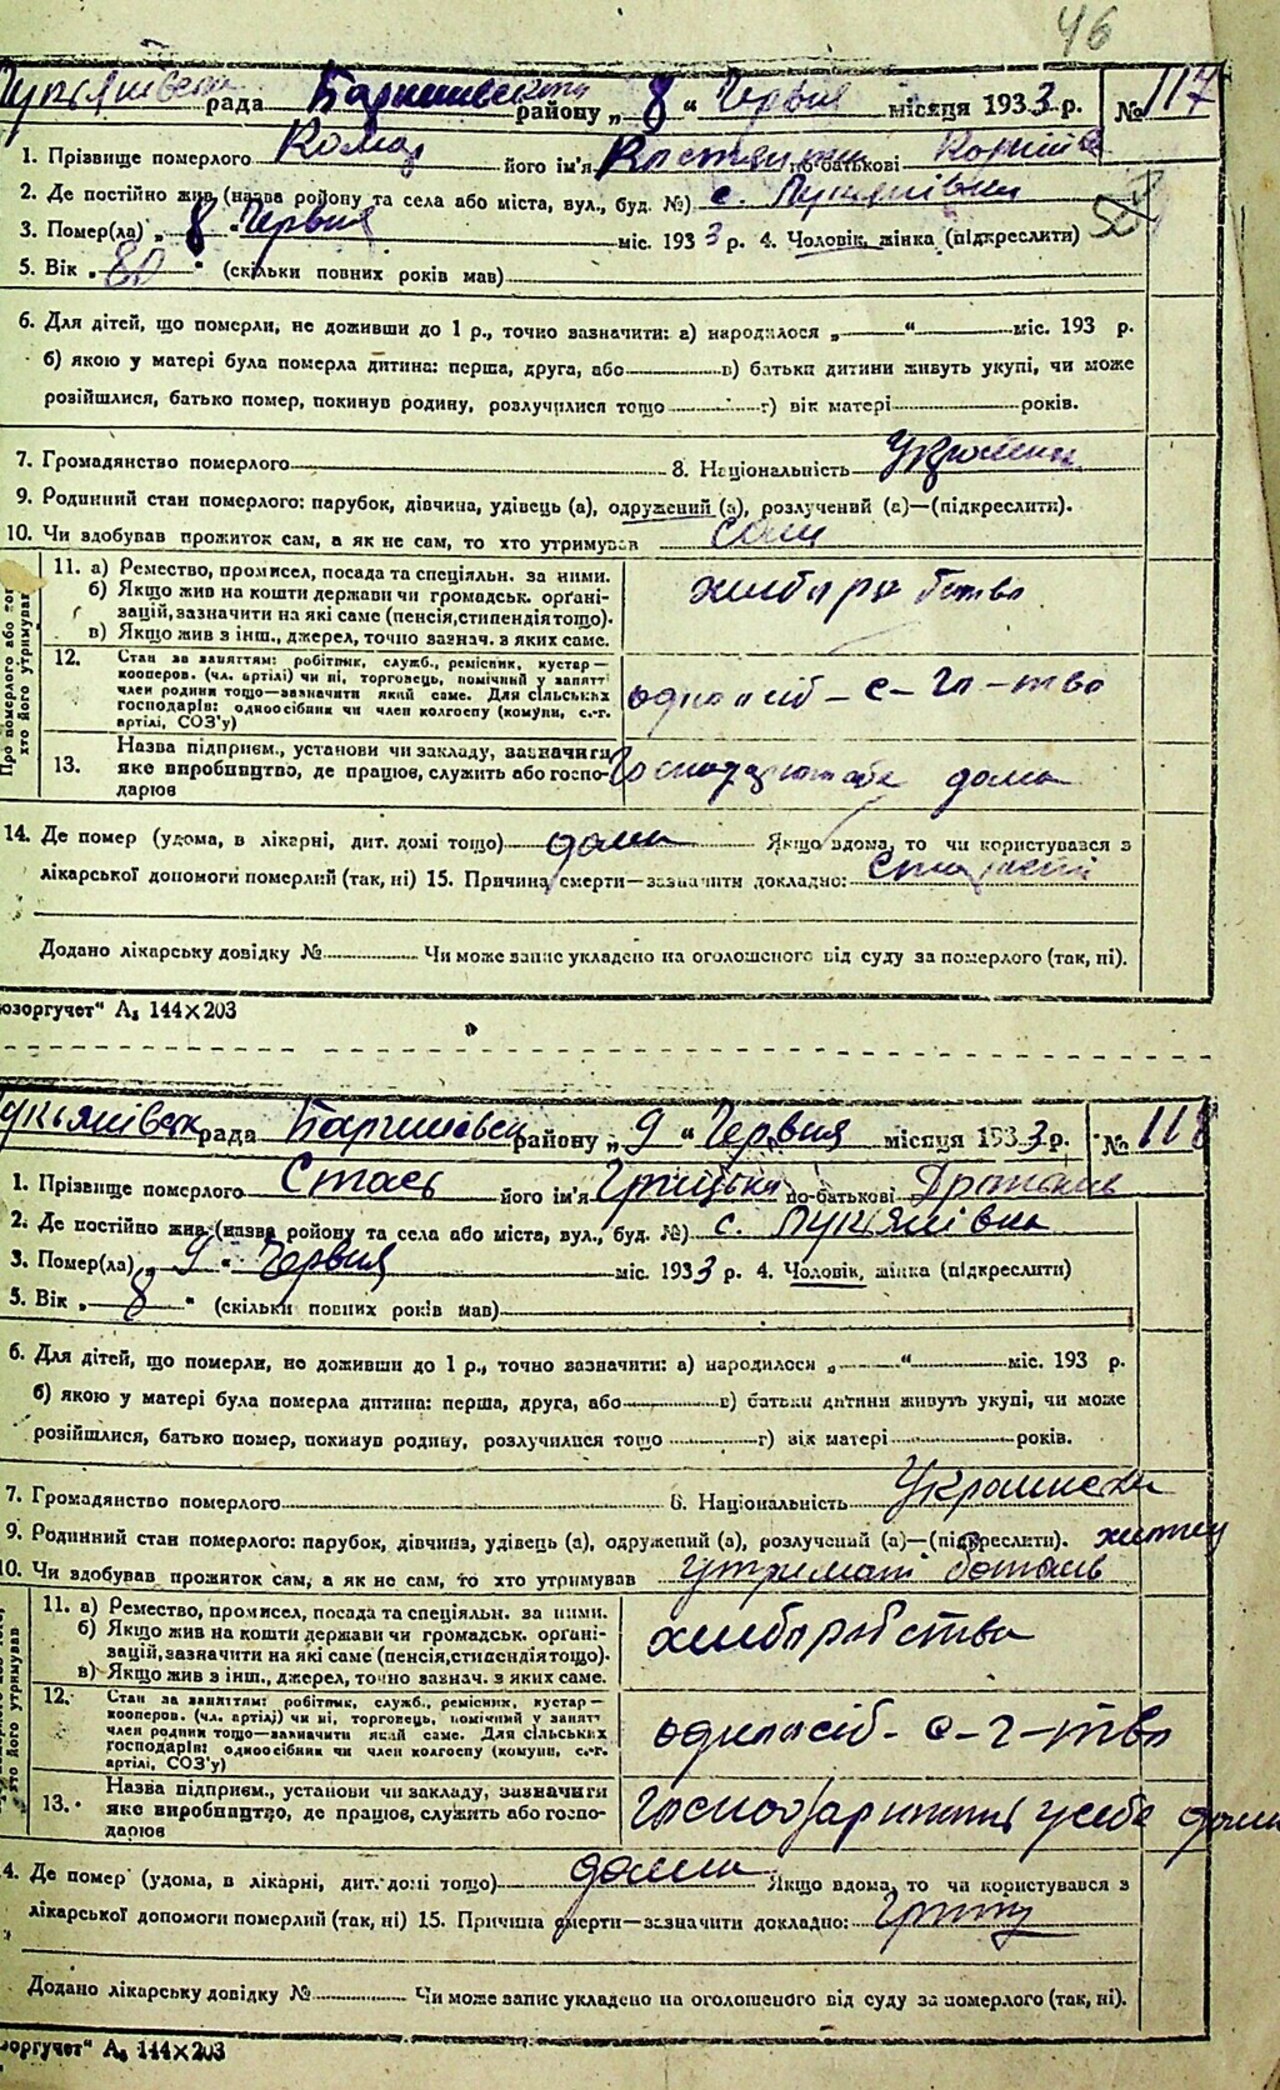 46
рада Баришівського району „ 8 “ Червня місяця 1933 р. № 117
1. Прізвище померлого Комар його ім'я по-батькові
2. Де постійно жив (назва ройону та села або міста, вул., буд. №) с. Лукянівка
3. Помер(ла) „ 8 “ Червня міс. 1933 р. 4. Чоловік, жінка (підкреслити)
5. Вік „ 80 “ (скільки повних років мав)
6. Для дітей, що померли, не доживши до 1 р., точно зазначити: а) народилося „ “ міс. 193 р.
б) якою у матері була померла дитина: перша, друга, або в) батьки дитини живуть укупі, чи може
розійшлися, батько помер, покинув родину, розлучилися тощо г) вік матері років.
7. Громадянство померлого 8. Національність
9. Родинний стан померлого: парубок, дівчина, удівець (а), одружений (а), розлучений (а)—(підкреслити).
10. Чи здобував прожиток сам, а як не сам, то хто утримував сам
11. а) Ремество, промисел, посада та спеціяльн. за ними.
б) Якщо жив на кошти держави чи громадськ. органі-
зацій, зазначити на які саме (пенсія, стипендія тощо).
в) Якщо жив з інш., джерел, точно зазнач. з яких саме.
хліборобство
12. Стан за заняттям: робітник, служб., ремісник, кустар—
кооперов. (чл. артілі) чи ні, торговець, помічний у занятт
член родини тощо—зазначити який саме. Для сільських
господарів: одноосібник чи член колгоспу (комуни, с.-г.
артілі, СОЗ'у)
одноосіб – с – го – тво
13. Назва підприєм., установи чи закладу, зазначити
яке виробництво, де працює, служить або госпо-
дарює
дома
Про померлого або
хто його утримував
14. Де помер (удома, в лікарні, дит. домі тощо) дома Якщо вдома, то чи користувався з
лікарської допомоги померлий (так, ні) 15. Причина смерти—зазначити докладно: старости
Додано лікарську довідку № Чи може запис укладено на оголошеного від суду за померлого (так, ні).
юзоргучет" А₅ 144×203
укьянівськ рада Баришівськ району „ 9 “ Червня місяця 1933 р. № 118
1. Прізвище померлого Стась його ім'я Грицько по-батькові
2. Де постійно жив (назва ройону та села або міста, вул., буд. №) с. Лукьянівка
3. Помер(ла) „ 9 “ Червня міс. 1933 р. 4. Чоловік, жінка (підкреслити)
5. Вік „ 8 “ (скільки повних років мав)
6. Для дітей, що померли, не доживши до 1 р., точно зазначити: а) народилося „ “ міс. 193 р.
б) якою у матері була померла дитина: перша, друга, або в) батьки дитини живуть укупі, чи може
розійшлися, батько помер, покинув родину, розлучилися тощо г) вік матері років.
7. Громадянство померлого 8. Національність
9. Родинний стан померлого: парубок, дівчина, удівець (а), одружений (а), розлучений (а)—(підкреслити).
10. Чи здобував прожиток сам, а як не сам, то хто утримував
11. а) Ремество, промисел, посада та спеціяльн. за ними.
б) Якщо жив на кошти держави чи громадськ. органі-
зацій, зазначити на які саме (пенсія, стипендія тощо).
в) Якщо жив з інш., джерел, точно зазнач. з яких саме.
хліборобство
12. Стан за заняттям: робітник, служб., ремісник, кустар—
кооперов. (чл. артілі) чи ні, торговець, помічний у занятт
член родини тощо—зазначити який саме. Для сільських
господарів: одноосібник чи член колгоспу (комуни, с.-г.
артілі, СОЗ'у)
одноосіб – с – г – тво
13. Назва підприєм., установи чи закладу, зазначити
яке виробництво, де працює, служить або госпо-
дарює
у себе дома
хто його утримував
4. Де помер (удома, в лікарні, дит. домі тощо) дома Якщо вдома, то чи користувався з
лікарської допомоги померлий (так, ні) 15. Причина смерти—зазначити докладно:
Додано лікарську довідку № Чи може запис укладено на оголошеного від суду за померлого (так, ні).
зоргучет" А₅ 144×203